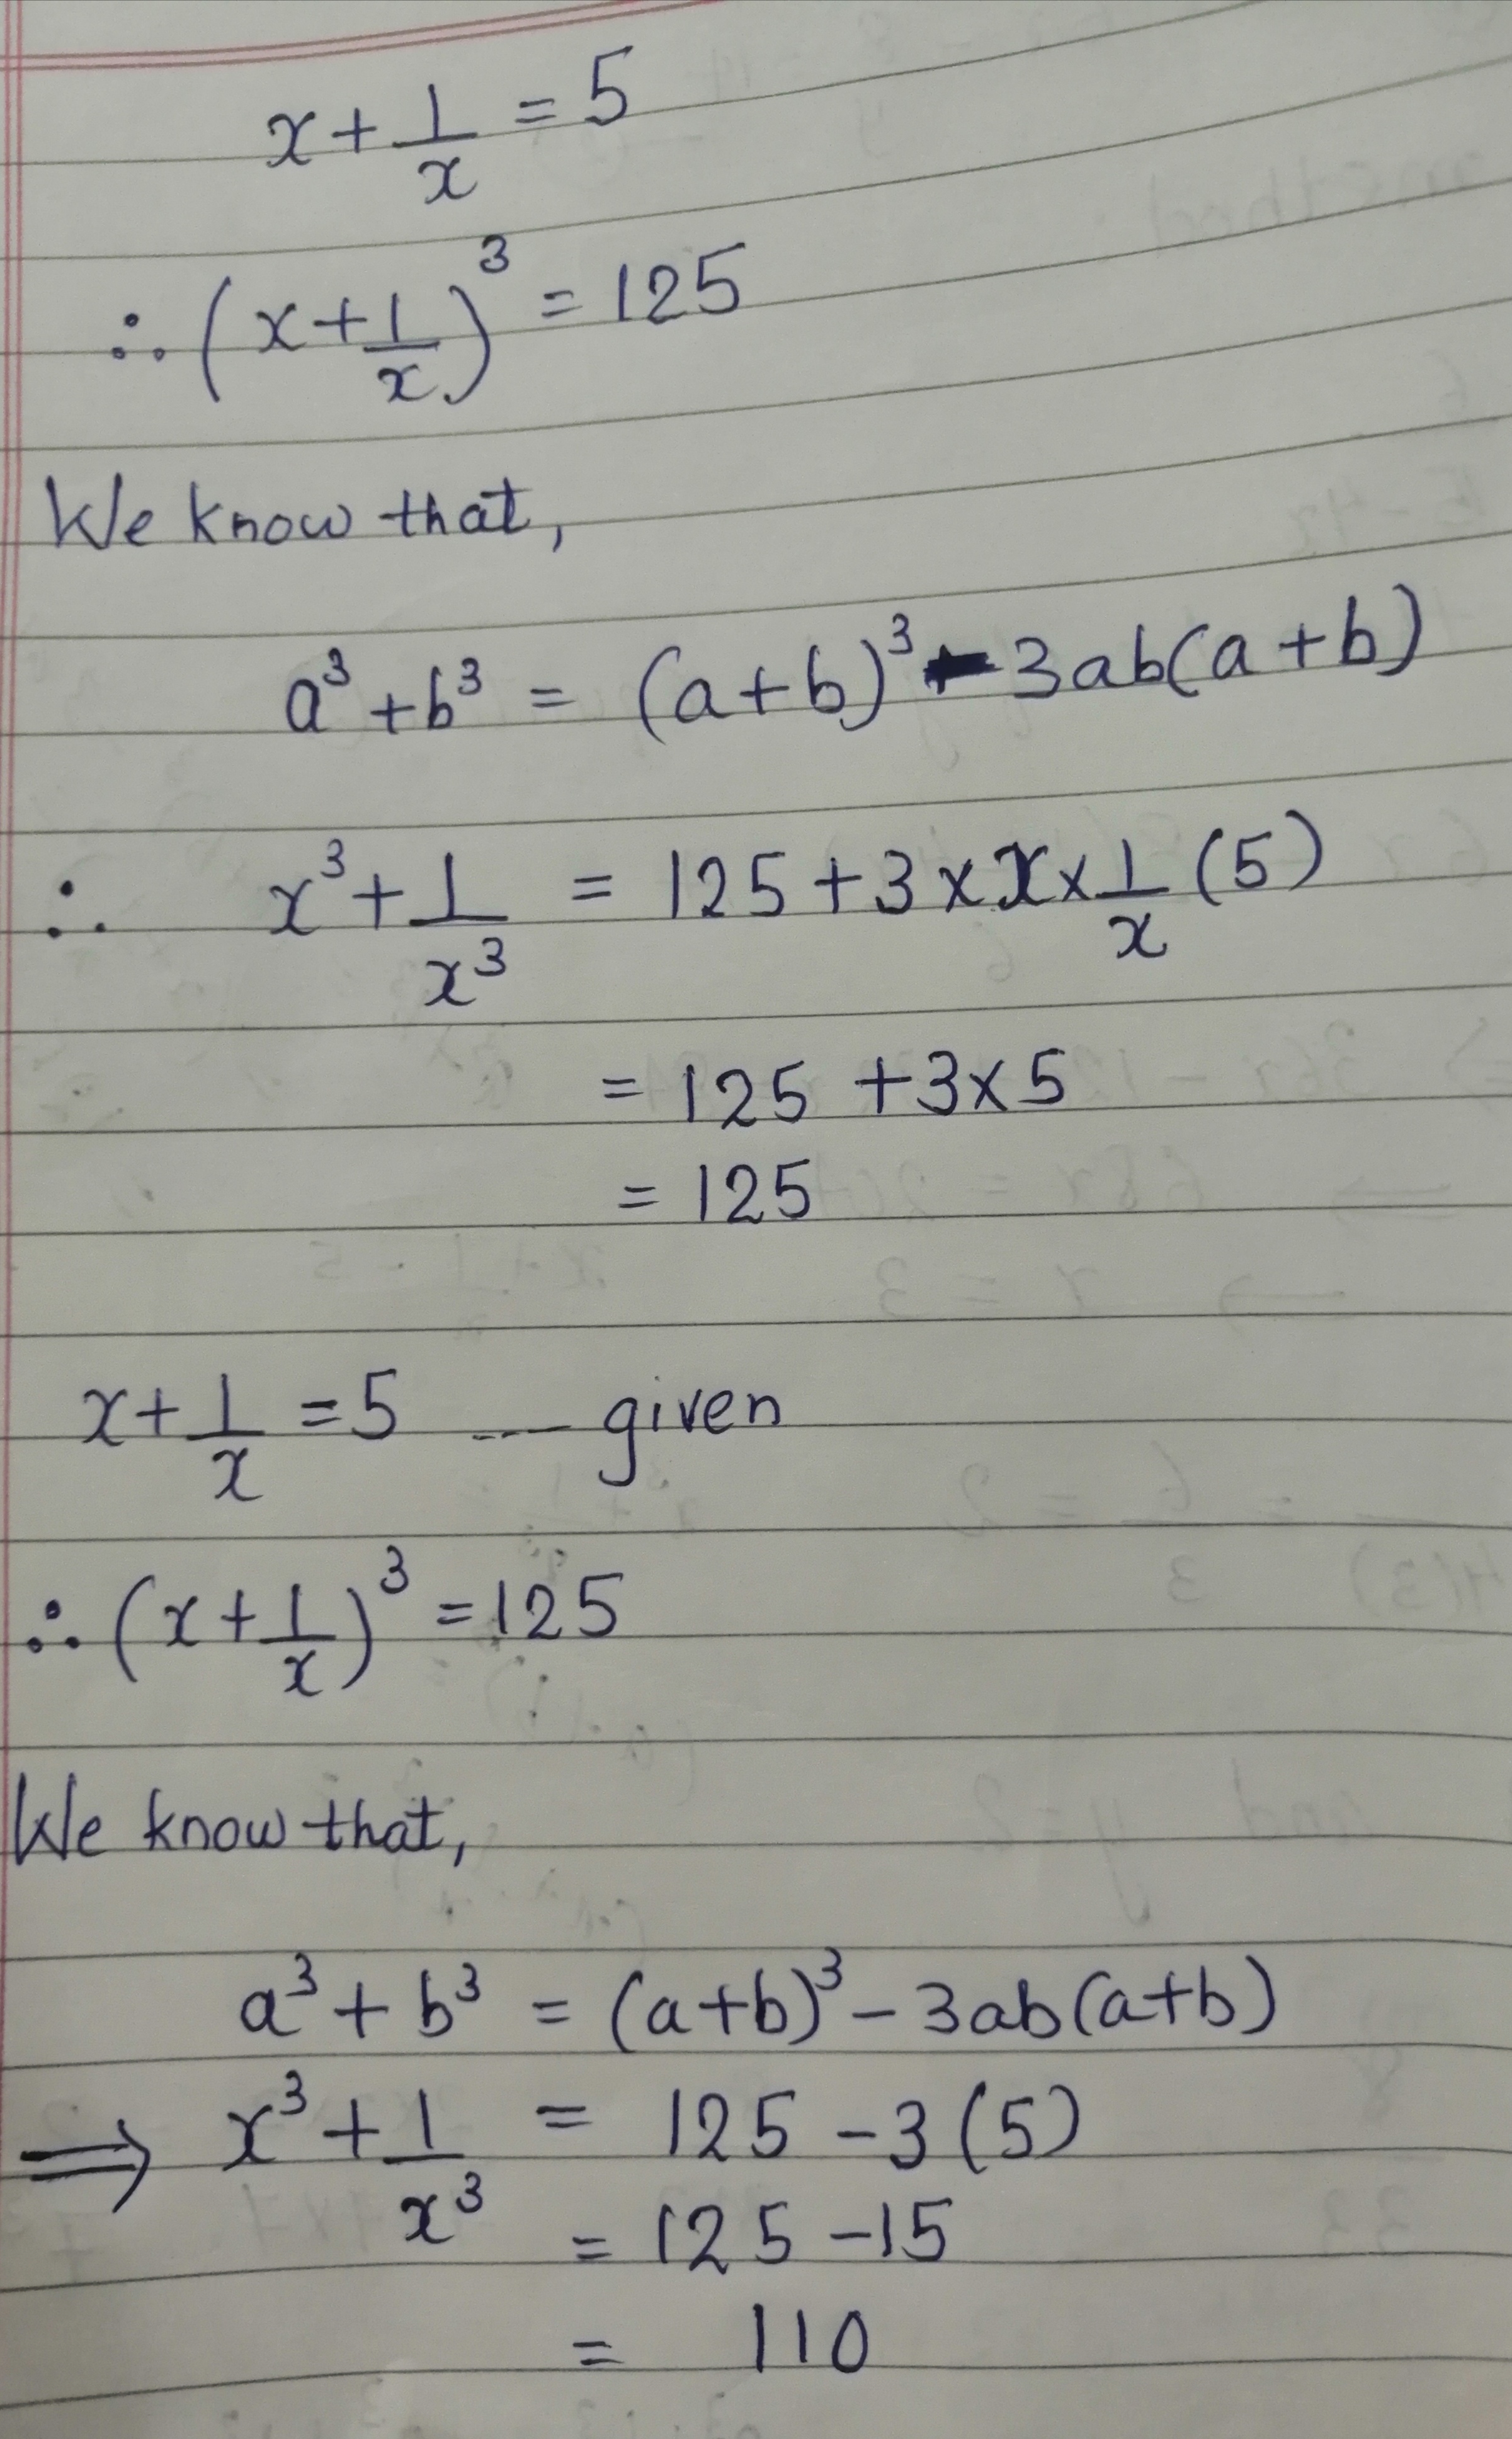 x + 1/x = 5
∴ (x + 1/x)³ = 125
We know that,
a³ + b³ = (a+b)³ - 3ab(a+b)
∴ x³ + 1/x³ = 125 + 3 × x × 1/x (5)
= 125 + 3×5
= 125
x + 1/x = 5 ---- given
∴ (x + 1/x)³ = 125
We know that,
a³ + b³ = (a+b)³ - 3ab(a+b)
⟹ x³ + 1/x³ = 125 - 3(5)
= 125 - 15
= 110